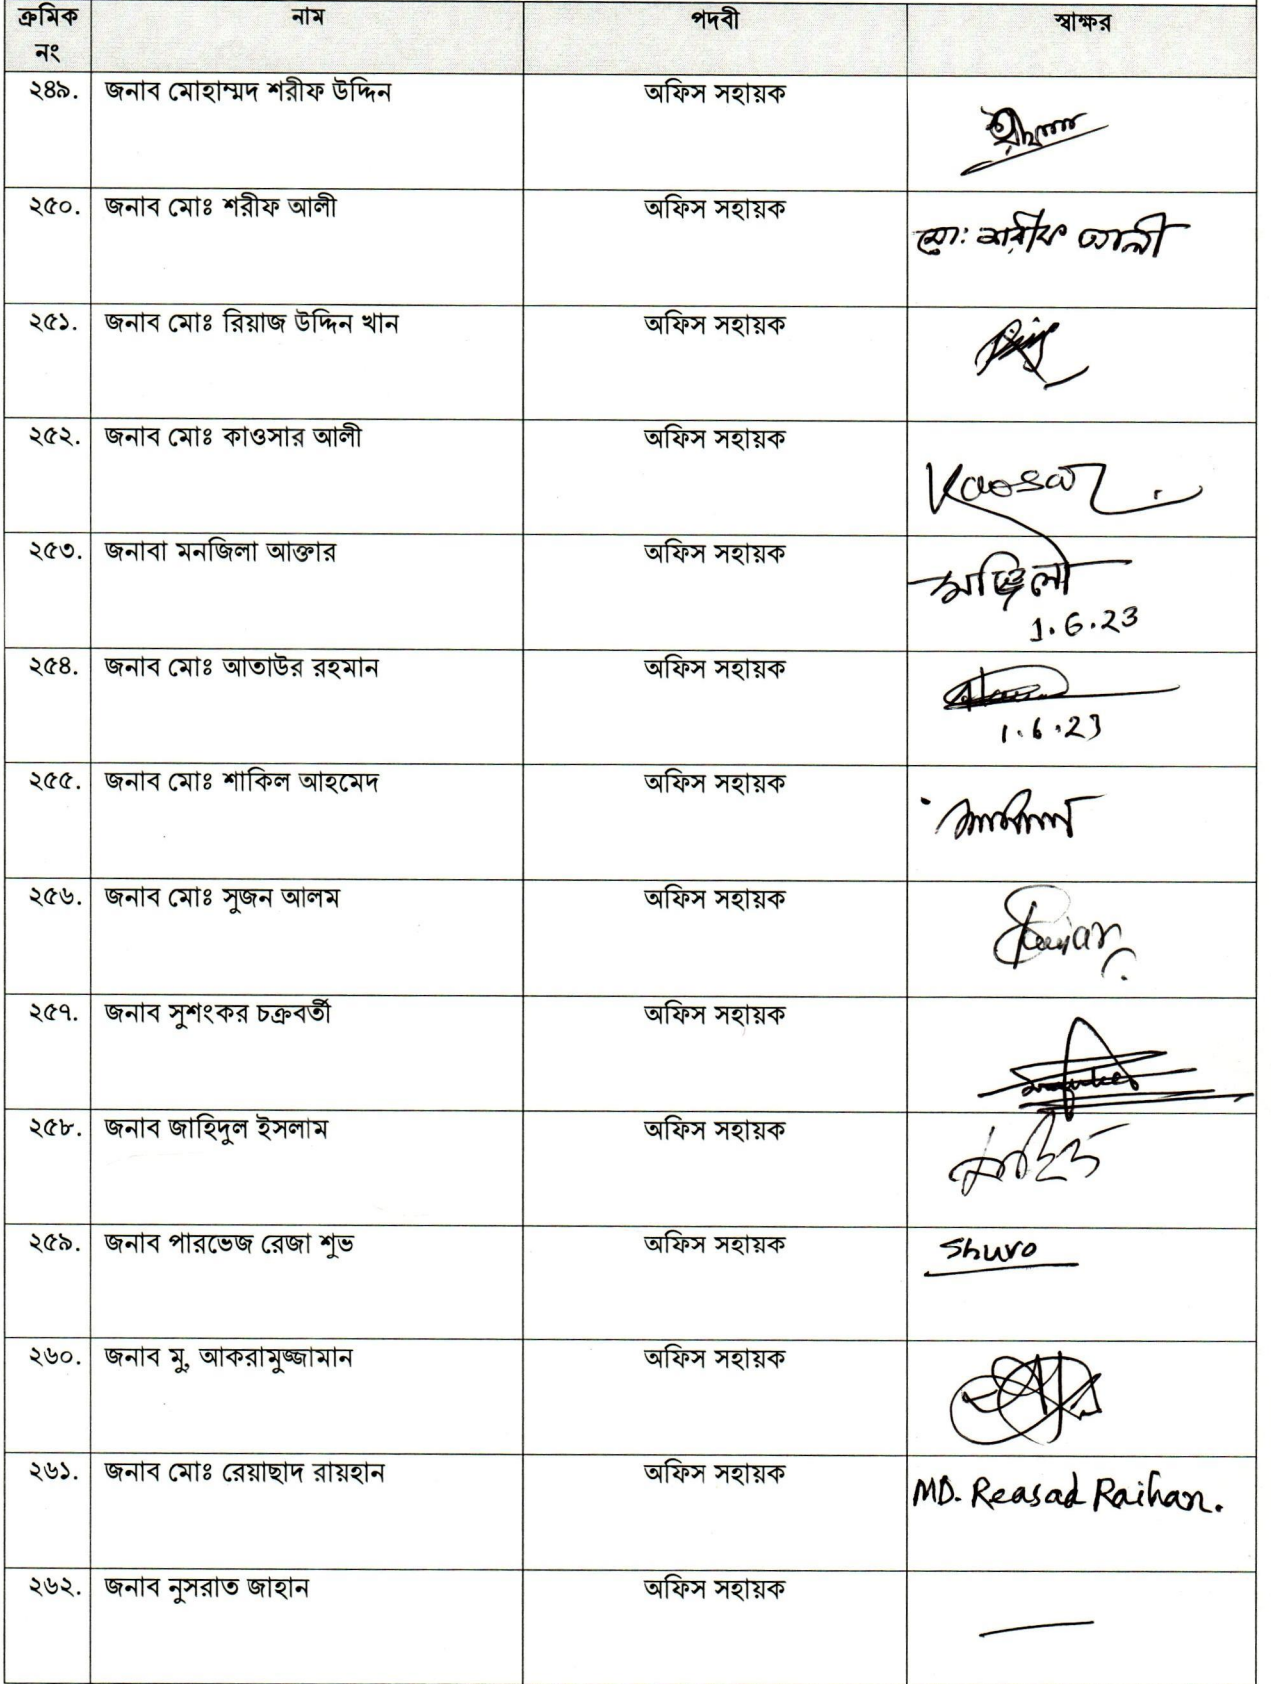 ক্রমিক নাম পদবী স্বাক্ষর
নং
২৪৯. জনাব মোহাম্মদ শরীফ উদ্দিন অফিস সহায়ক
২৫০. জনাব মোঃ শরীফ আলী অফিস সহায়ক
মো: শরীফ আলী
২৫১. জনাব মোঃ রিয়াজ উদ্দিন খান অফিস সহায়ক
২৫২. জনাব মোঃ কাওসার আলী অফিস সহায়ক
Kaosar
২৫৩. জনাবা মনজিলা আক্তার অফিস সহায়ক
1.6.23
২৫৪. জনাব মোঃ আতাউর রহমান অফিস সহায়ক
1.6.23
২৫৫. জনাব মোঃ শাকিল আহমেদ অফিস সহায়ক
২৫৬. জনাব মোঃ সুজন আলম অফিস সহায়ক
২৫৭. জনাব সুশংকর চক্রবর্তী অফিস সহায়ক
২৫৮. জনাব জাহিদুল ইসলাম অফিস সহায়ক
২৫৯. জনাব পারভেজ রেজা শুভ অফিস সহায়ক
Shuvo
২৬০. জনাব মু, আকরামুজ্জামান অফিস সহায়ক
২৬১. জনাব মোঃ রেয়াছাদ রায়হান অফিস সহায়ক
MD. Reasad Raihan.
২৬২. জনাব নুসরাত জাহান অফিস সহায়ক